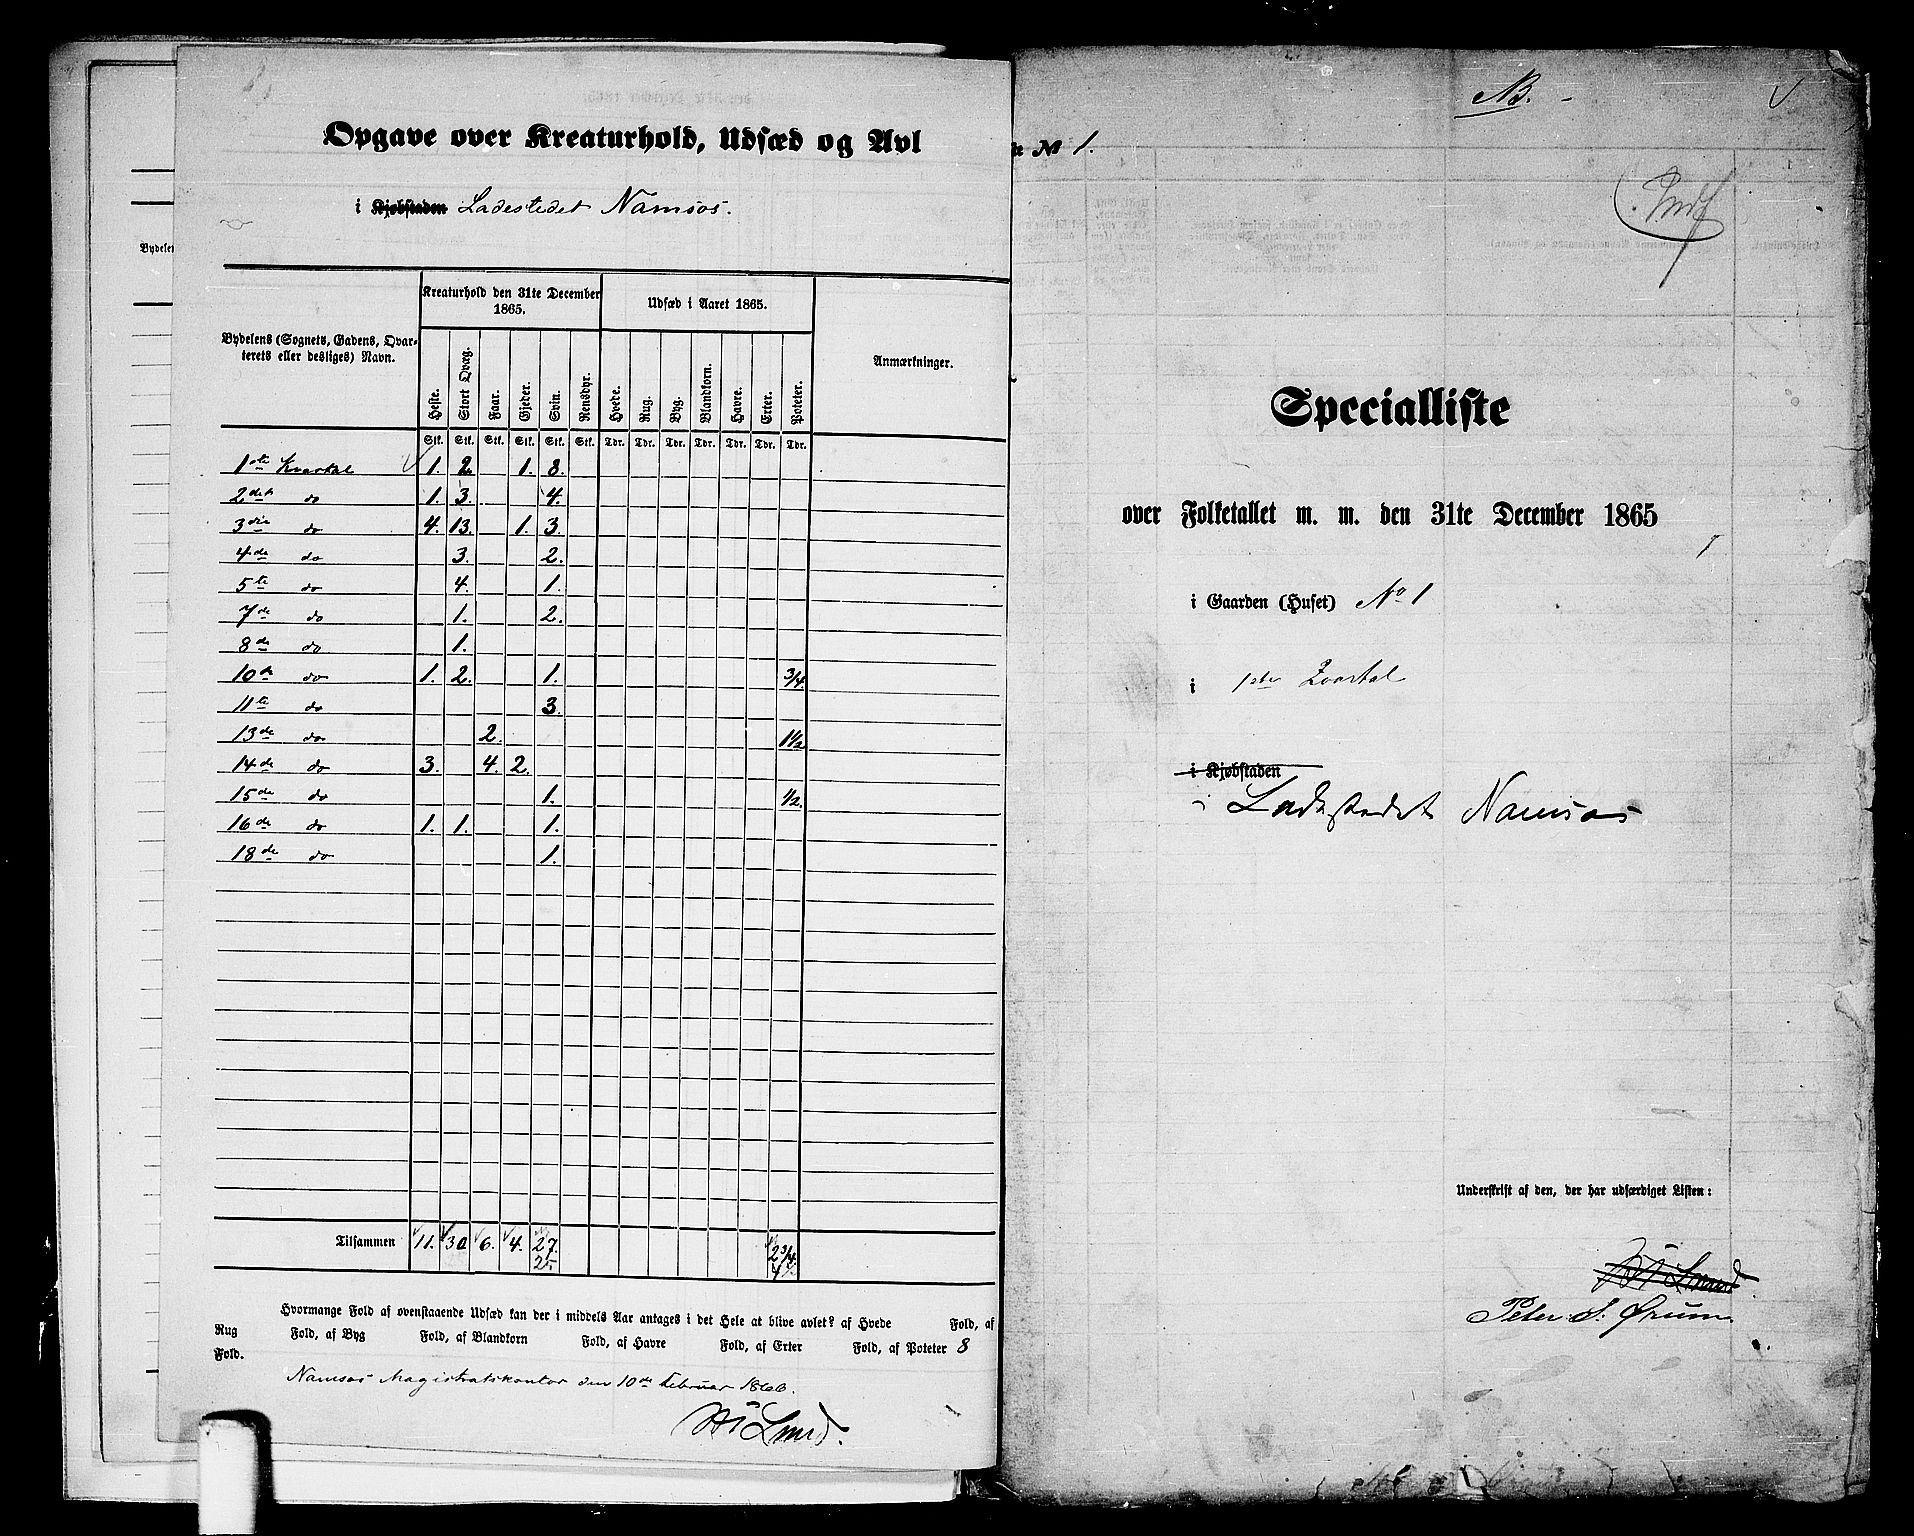 Opgave over Kreaturhold, Udsæd og Avl
i Kjøbstaden Ladestedet Namsos.
Bydelens (Sognets, Gadens, Qvar-
terets eller desliges) Navn.
Kreaturhold den 31te December
1865.
Udsæd i Aaret 1865.
Anmærkninger.
Heste. Stort Qvæg. Faar. Gjeder. Svin. Rensdyr. Hvede. Rug. Byg. Blandkorn. Havre. Erter. Poteter.
Stk. Stk. Stk. Stk. Stk. Stk. Tdr. Tdr. Tdr. Tdr. Tdr. Tdr. Tdr.
1ste Kvartal 1. 2. 1. 8.
2det do 1. 3. 4.
3die do 4. 13. 1. 3.
4de do 3. 2.
5te do 4. 1.
7de do 1. 2.
8de do 1.
10de do 1. 2. 1. 3/4
11te do 3.
13de do 2. 1 1/2
14de do 3. 4. 2.
15de do 1. 1/2.
16de do 1. 1. 1.
18de do 1.
Tilsammen 11. 30 6. 4. 27. 2 3/4
25
Hvormange Fold af ovenstaaende Udsæd kan der i middels Aar antages i det Hele at blive avlet? af Hvede Fold, af
Rug Fold, af Byg Fold, af Blandkorn Fold, af Havre Fold, af Erter Fold, af Poteter 8
Fold.
Namsos Magistratskontor den 10de Februar 1866.
Bydelen
NB.
№ 1.
Specialliste
over Folketallet m. m. den 31te December 1865
i Gaarden (Huset) No 1
i 1ste Qvartal
i Kjøbstaden
i Ladestedet Namsos
Underskrift af den, der har udfærdiget Listen:
Peter S. Ørum